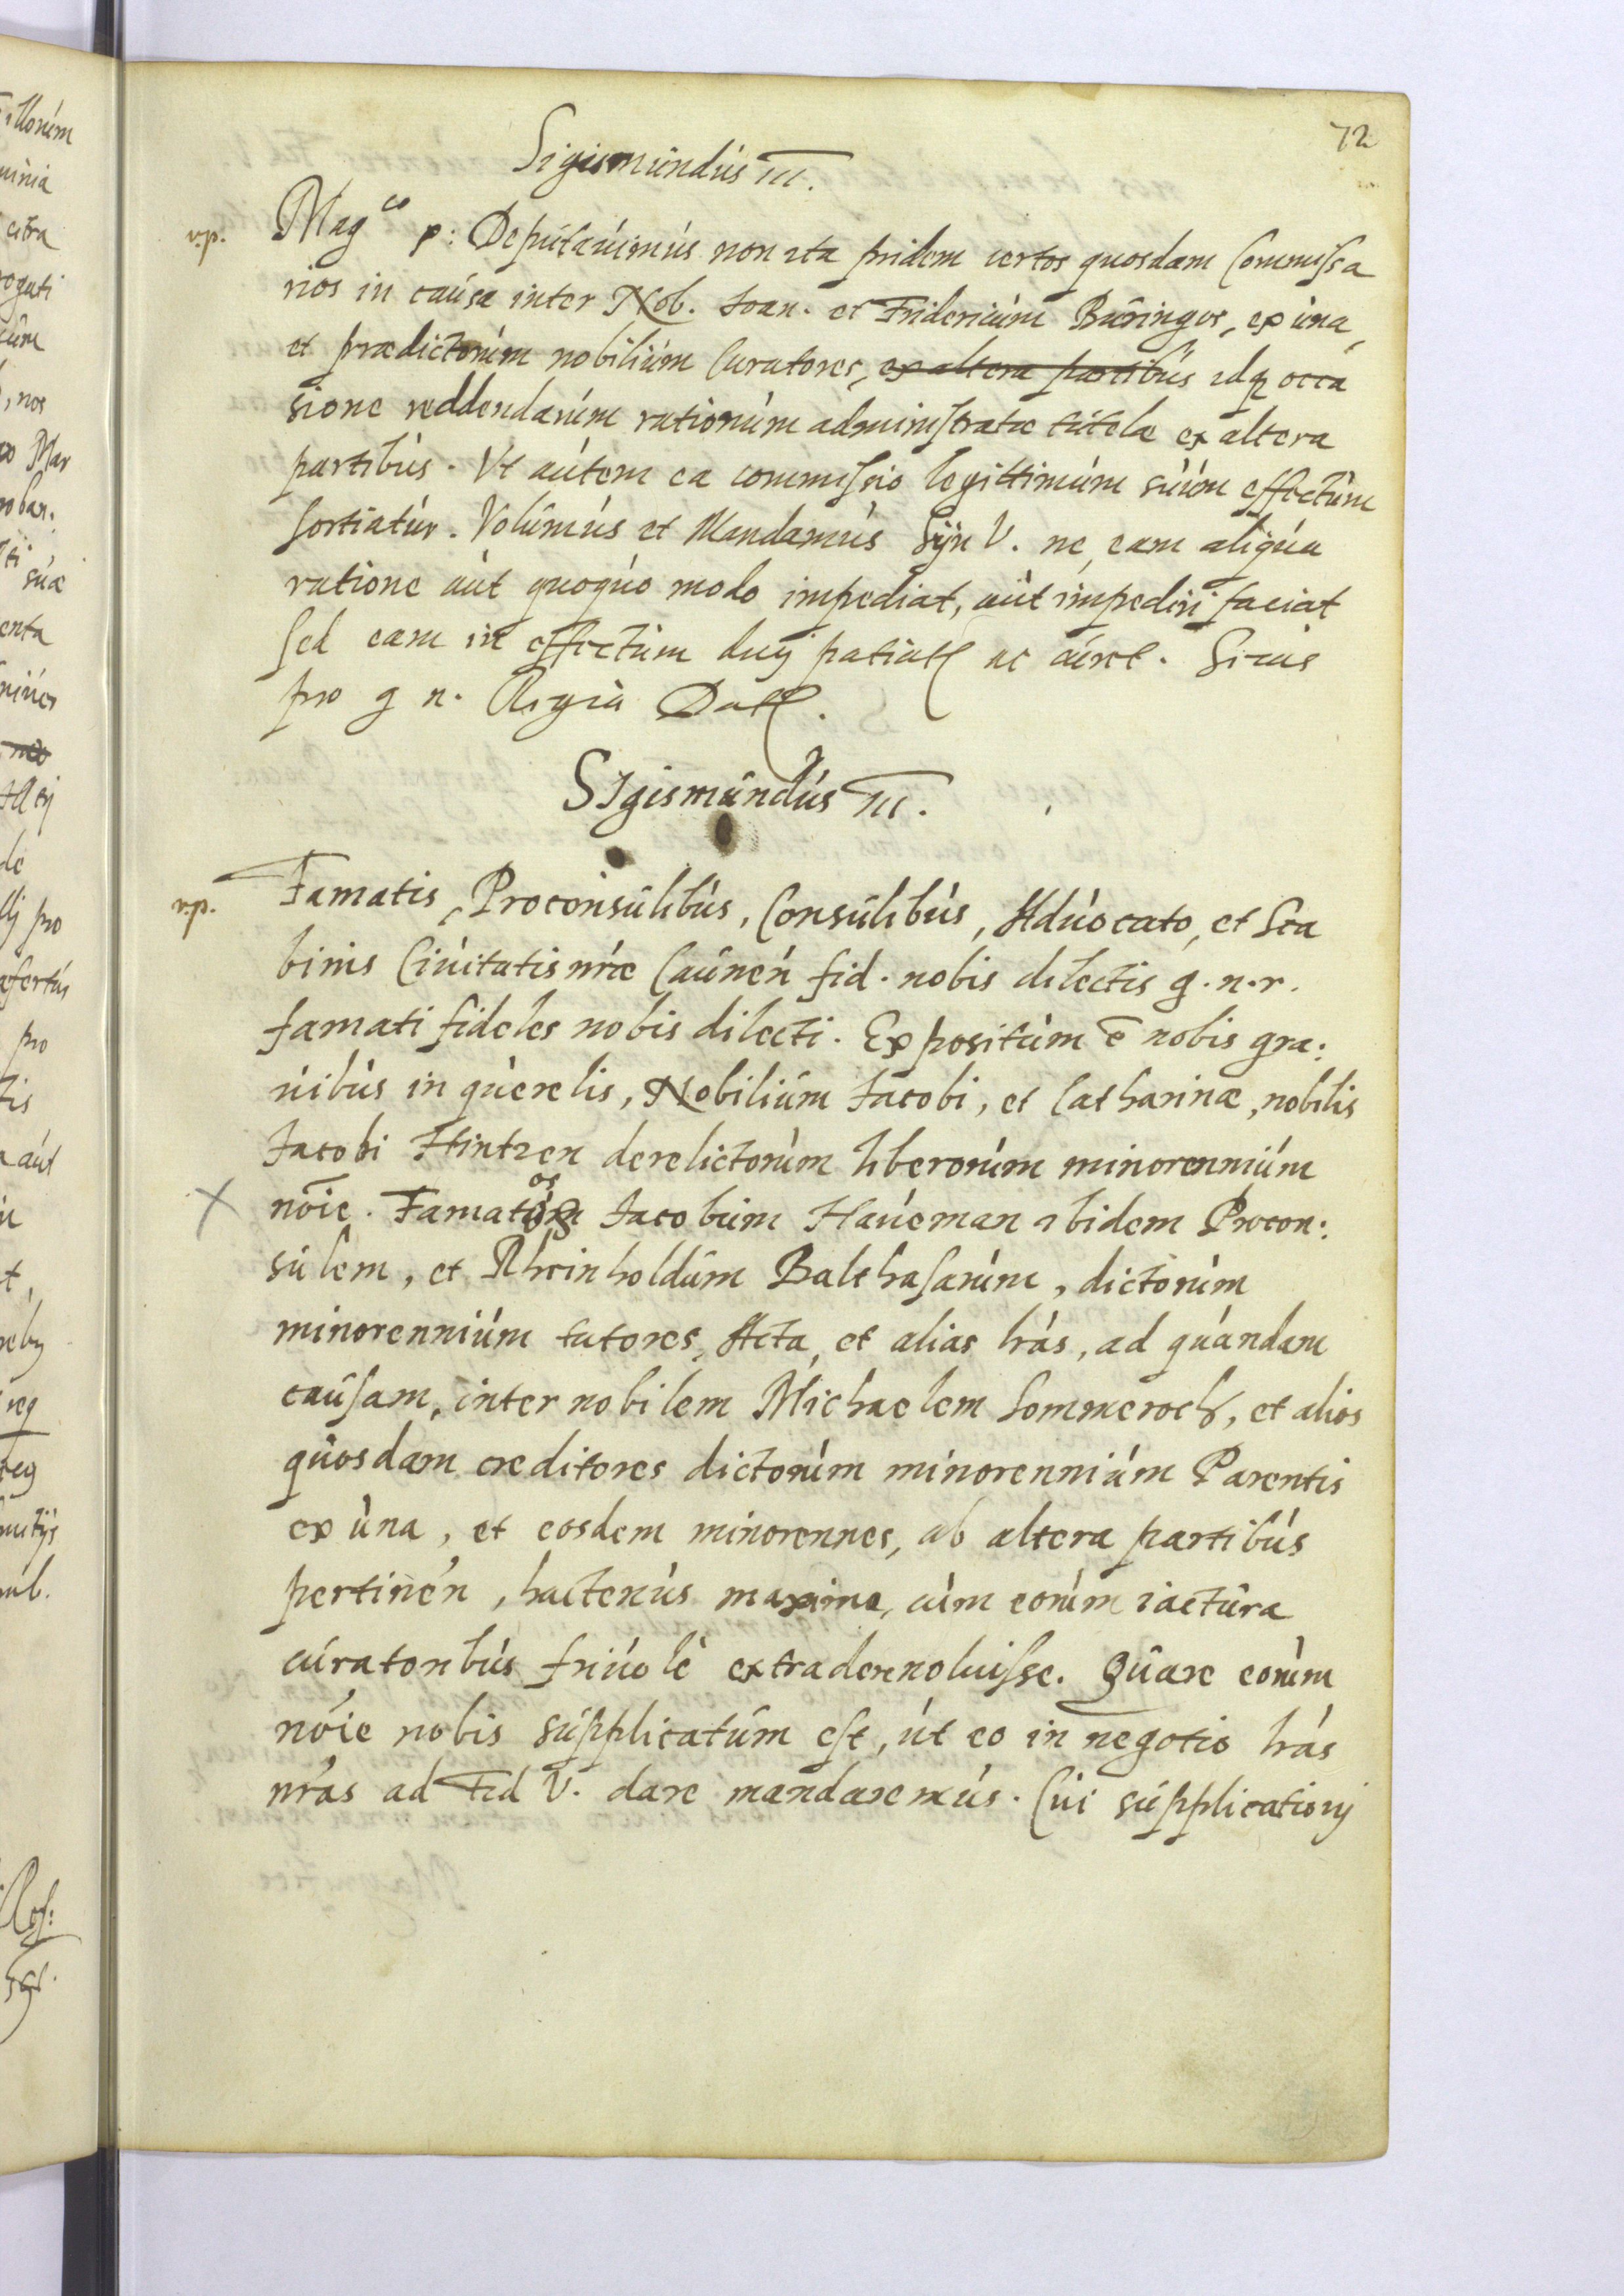 72
Sigismúndús III.
v.p.
Mag^co p: Depútaúimús non ita pridem certos quosdam Commissa
rios in caúsa inter Nob. Ioan. et Fridericúm Búringos, ex úna,
et prædictorúm nobiliúm Curatores, ex altera partibús idq occa
sione reddendarúm rationúm administratæ tútelæ ex altera
partibús. Vt aútem ea commissio legittimúm súúm effectúm
sortiatúr. Volúmús et Mandamús Syn V. ne eam aliqúa
ratione aút quoqúo modo impediat, aút impediri faciat
sed eam in effectúm duci patiat ac cúret. Secús
pro g n. Regia Datt.
Sigismúndús III.
v.p.
Famatis, Proconsúlibús, Consúlibús, Adúocato, et Sca
binis Ciúitatis nræ Caúnen fid. nobis dilectis g.n.r.
famati fideles nobis dilecti. Expositúm ē nobis gra:
úibús in qúerelis, Nobiliúm Iacobi, et Catharinæ, nobilis
Iacobi Hintzen derelictorúm liberorúm minorenniúm
nōie. Famatos Iacobúm Haúeman ibidem Procon:
súlem, et Rheinholdúm Balthasarúm, dictorúm
minorenniúm tutores, Acta, et alias lrás, ad qúandam
caúsam, inter nobilem Michaelem Sommeroch, et alios
qúosdam creditores dictorúm minorenniúm Parentis
ex úna, et eosdem minorennes, ab altera partibús
pertinén, hactenús maxima, cúm eorúm iactúra
cúratoribús friúolè extradere nolúisse. Qúare eorúm
nōie nobis súpplicatúm est, út eo in negotio lrás
nrás ad Fid V. dare mandaremús. Cúi súpplicationj